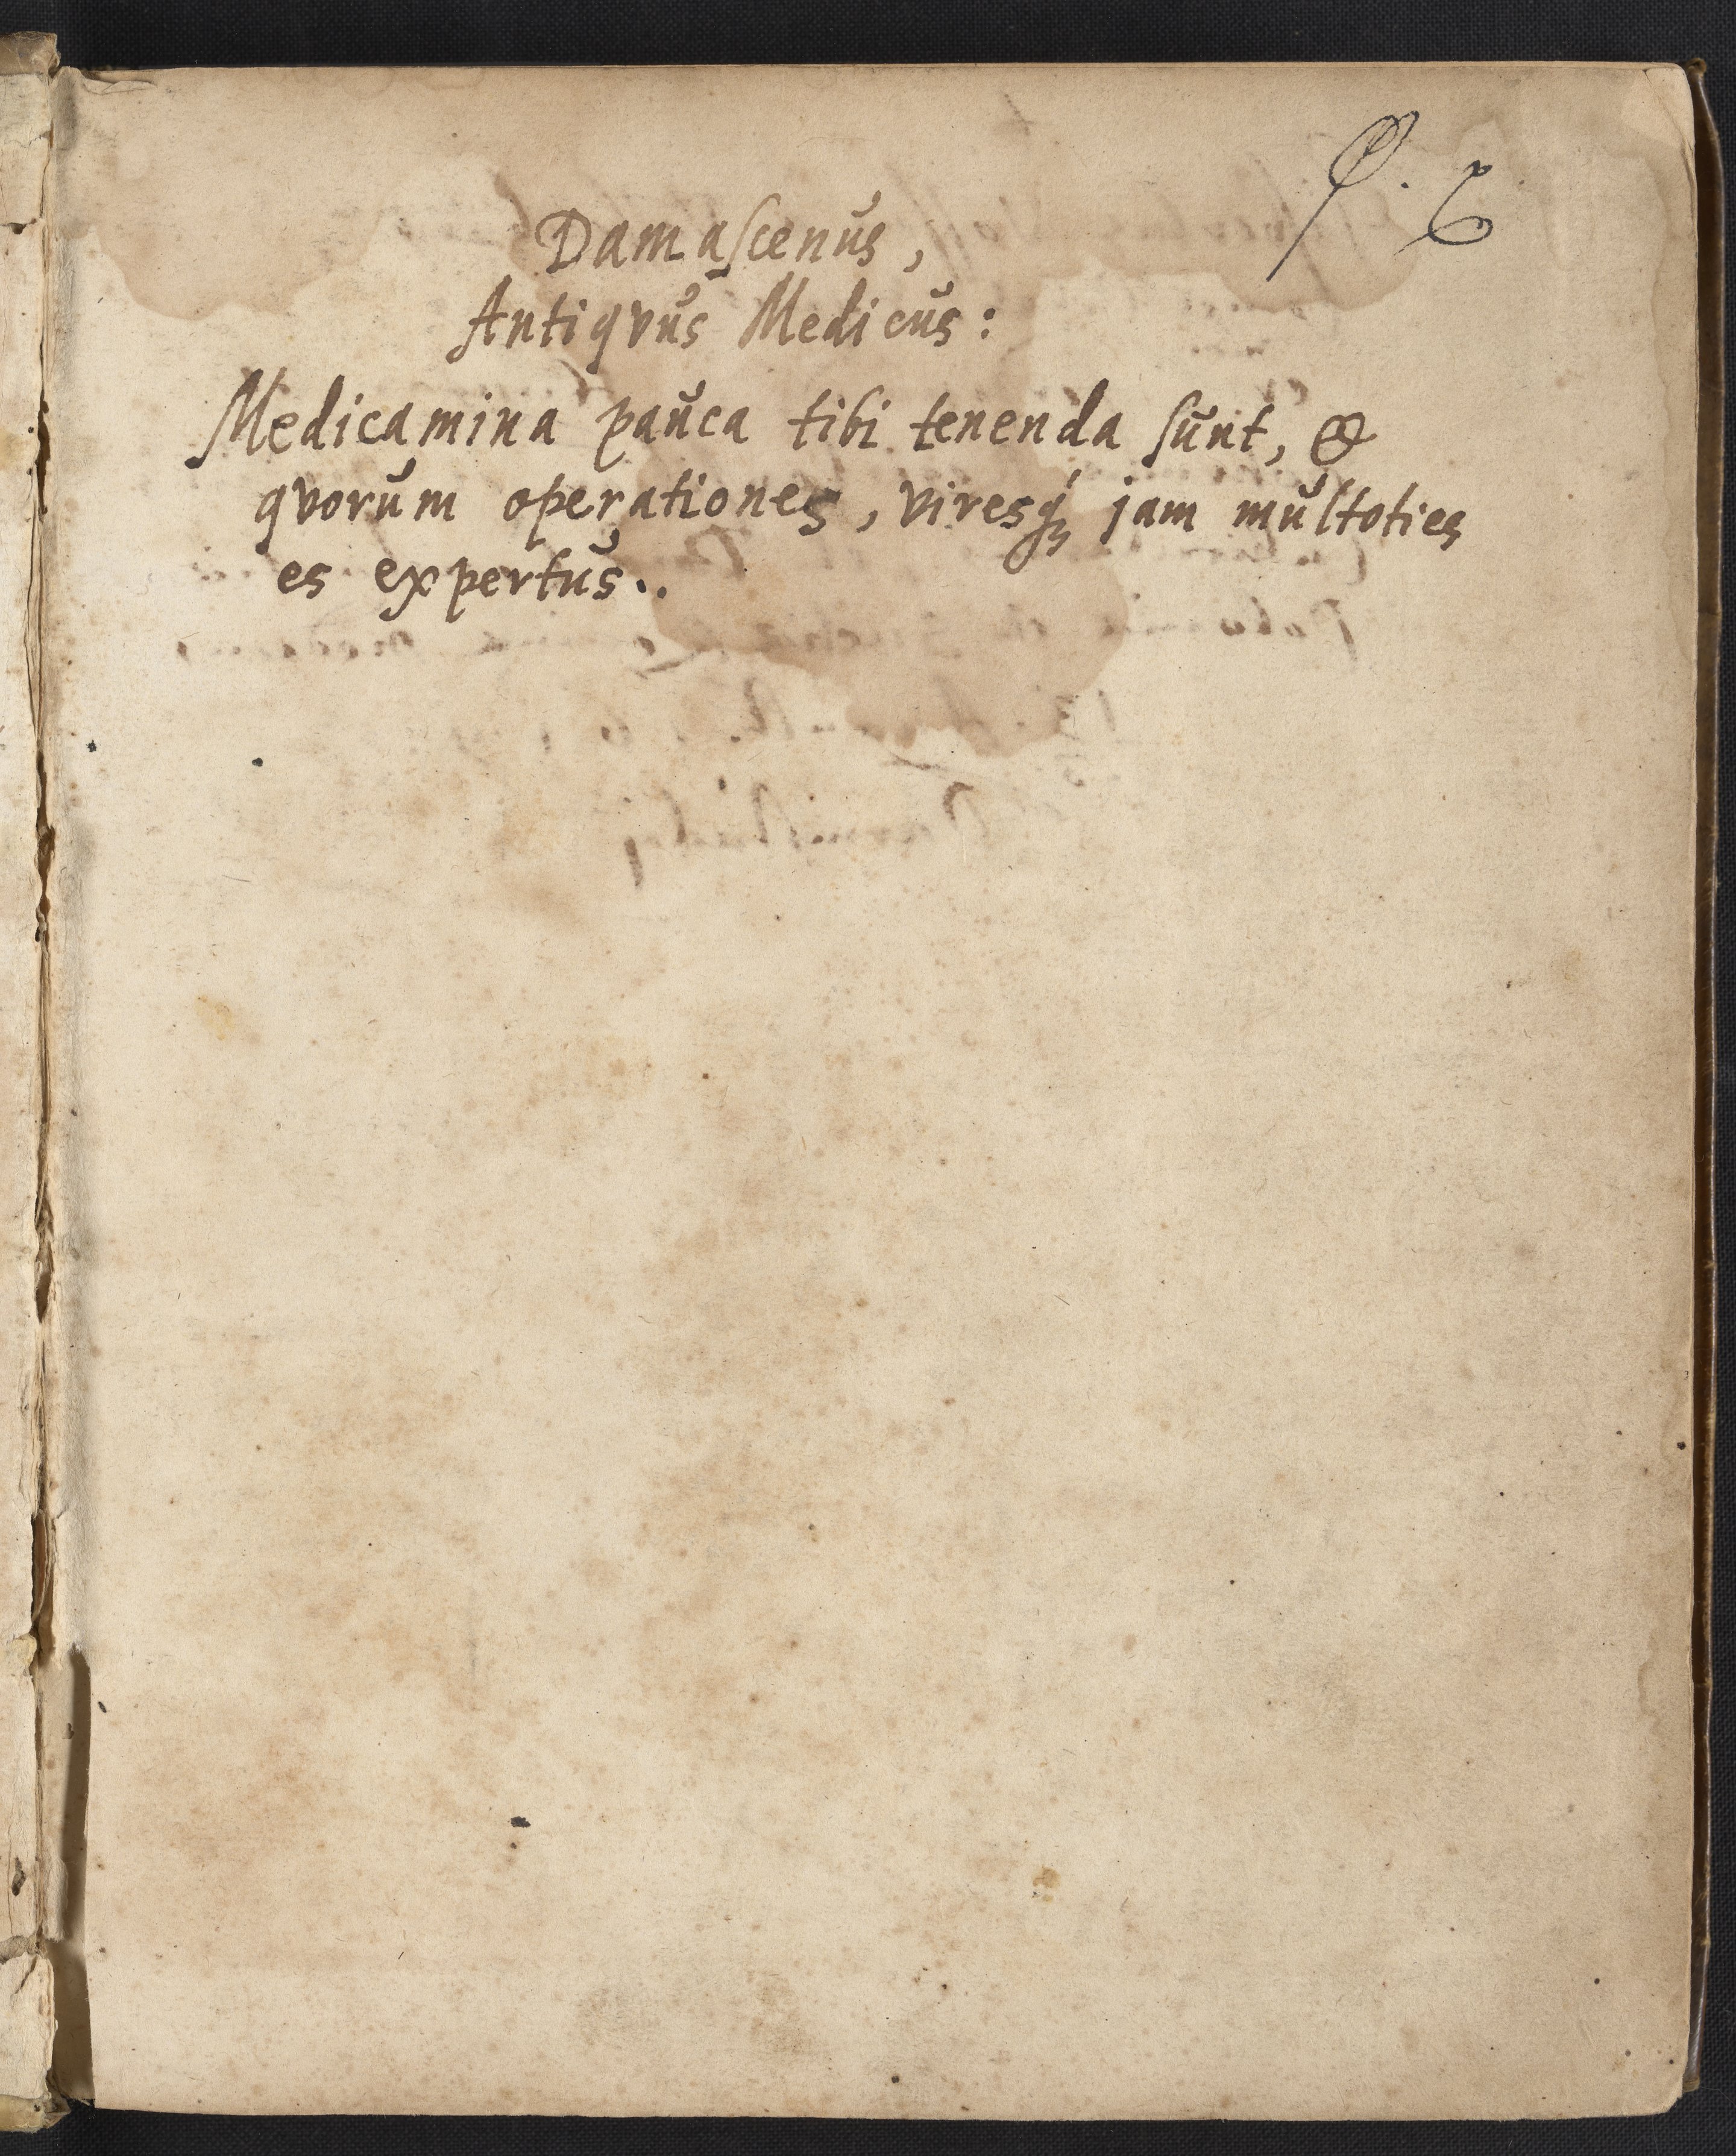 Damascenus,
Antiqvus Medicus:
Medicamina pauca tibi tenenda sunt, &
qvorum operationes, viresq́ꝫ jam multoties
es expertus..